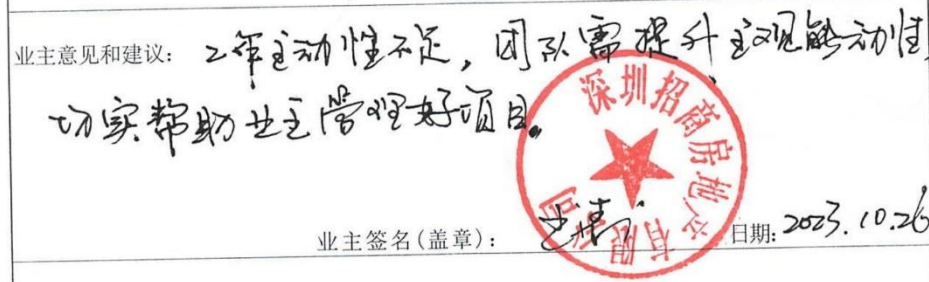 业主意见和建议： 工作主动性不足，团队需提升主观能动性，
切实帮助业主管理好项目。
深圳招商房地产有限公司
业主签名(盖章)： 日期: 2023.10.26